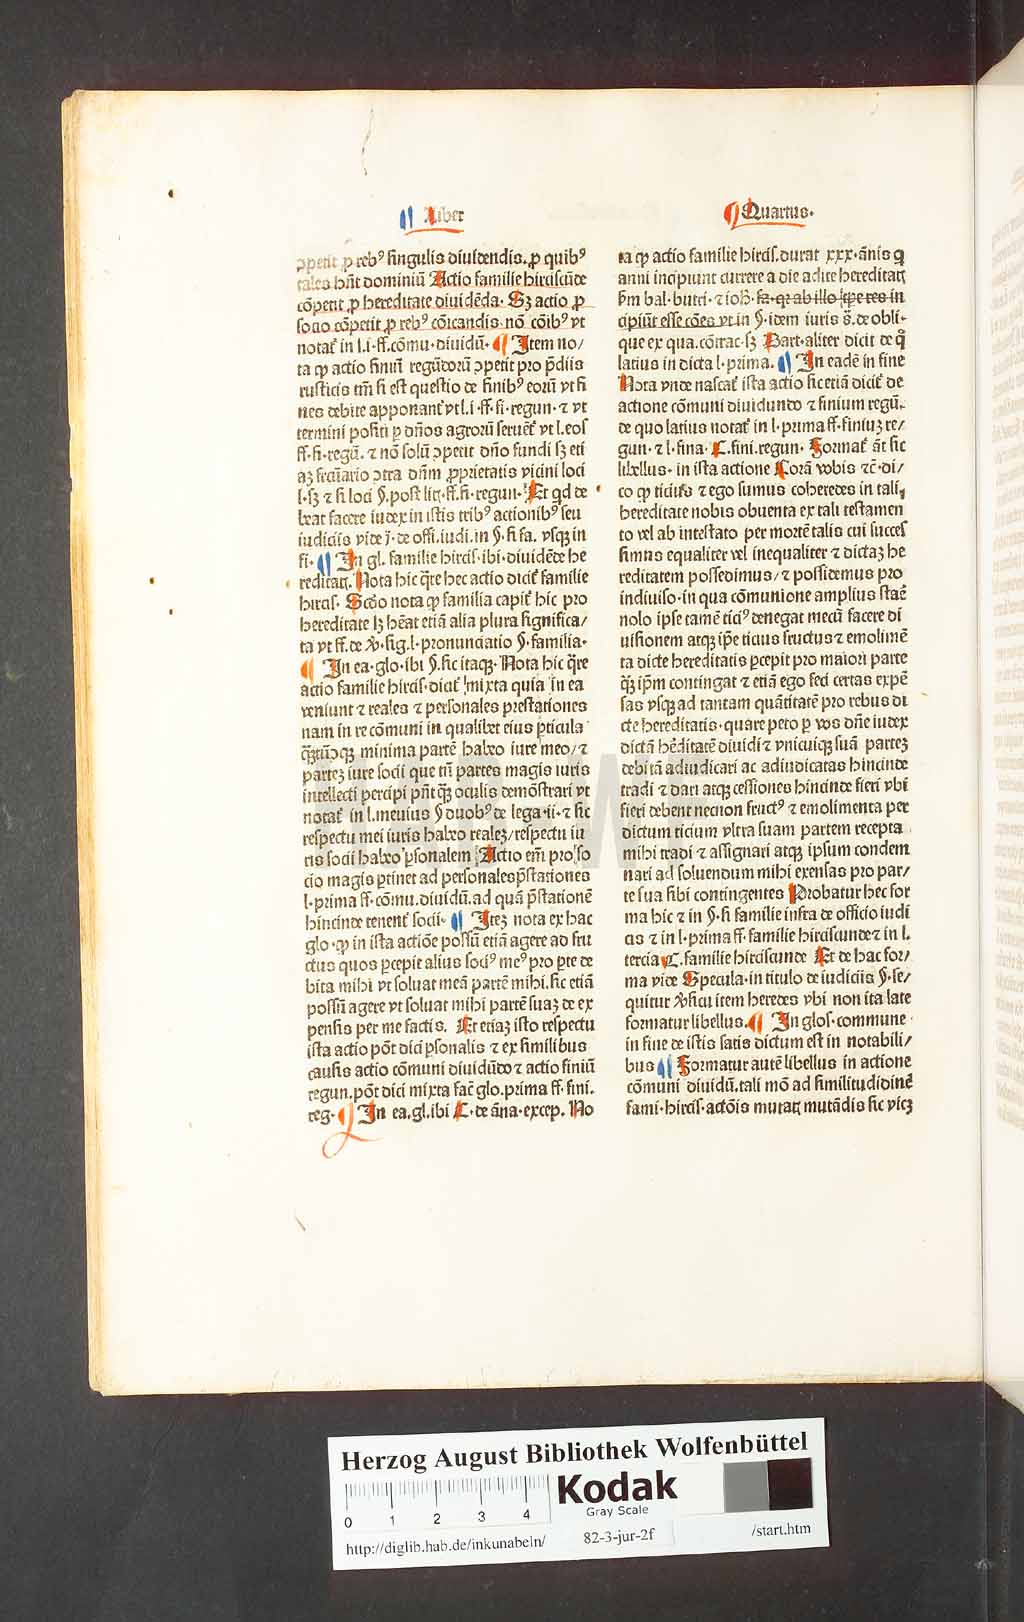 Liber
Quartus.
ↄpetit ꝓ rebꝰ singulis diuidendis. ꝓ quibꝰ
tales hñt dominiũ Actio familie hirciscũde
cõpetit ꝓ hereditate diuidẽda. Sꝫ actio ꝓ
socio cõpetit ꝓ rebꝰ cõicandis. nõ cõibꝰ vt
notat᷑ in l.i.ff.cõmu.diuidũ. Item no/
ta ꝙ actio finiũ regũdorũ ↄpetit pro p̃diis
rusticis tm̃ si est questio de finibꝰ eorũ vt fi
nes debite apponant᷑ vt l.i.ff.fi.regun. ⁊ vt
termini positi ꝑ dños agrorũ seruẽt᷑ vt l.eos
ff.fi.regũ. ⁊ nõ solũ ↄpetit dño fundi sꝫ eti
aꝫ fcũario ↄtra dñm ꝓprietatis vicini loci
l.sꝫ ⁊ si loci §.post lit̃.ff.fi.regun. Et qd de
beat facere iudex in istis tribꝰ actionibꝰ seu
iudiciis vide j. de offi.iudi.in §.si fa. vsqꝫ in
fi. In gl. familie hircis.ibi.diuidẽde he
reditatꝭ. Nota hic q̃re hec actio dicit᷑ familie
hircis. Scðo nota ꝙ familia capit᷑ hic pro
hereditate lꝫ hẽat etiã alia plura significa/
ta vt ff.de ꝟ.sig.l.pronunciatio §.familia.
In ea.glo.ibi §.sic itaqꝫ. Nota hic q̃re
actio familie hircis.dicit᷑ mixta quia in ea
veniunt ⁊ reales ⁊ personales prestationes
nam in re cõmuni in qualibet eius ꝑticula
q̃ꝫtũcqꝫ minima partẽ habeo iure meo/⁊
parteꝫ iure socii que tñ partes magis iuris
intellecti percipi pñt q̃ꝫ oculis demõstrari vt
notat᷑ in l.meuius §.duobꝰ de lega.ii. ⁊ sic
respectu mei iuris habeo realeꝫ/respectu iu
ris socii habeo ꝑsonalem Actio em̃ pro so
cio magis ꝑtinet ad personales p̃stationes
l.prima ff.cõmu.diuidũ.ad quã p̃stationẽ
hincinde tenent᷑ socii. Iteꝫ nota ex hac
glo.ꝙ in ista actiõe possũ etiã agere ad fru
ctus quos ꝑcepit alius sociꝰ meꝰ pro ꝑte de
bita mihi vt soluat meã partẽ mihi.sic etiã
possũ agere vt soluat mihi partẽ suaꝫ de ex
pensis per me factis. Et etiaꝫ isto respectu
ista actio põt dici ꝑsonalis ⁊ ex similibus
causis actio cõmuni diuidũdo ⁊ actio finiũ
regun.põt dici mixta fac̃ glo.prima ff.fini.
reg. In ea.gl.ibi C.de ãna.excep. No
ta ꝙ actio familie hircis.durat xxx.ãnis ⁊
anni incipiunt currere a die adite hereditatꝭ
ẜm bal.butri.⁊ ioh̃.fa.qr ab illo tꝑe res in
cipiũt esse cões vt in §.idem iuris s̃.de obli.
que ex qua.cõtrac.sꝫ Bart.aliter dicit de q̃
latius in dicta l.prima. In eadẽ in fine
Nota vnde nascat᷑ ista actio sic etiã dicit᷑ de
actione cõmuni diuidundo ⁊ finium regũ.
de quo latius notat᷑ in l.prima ff.finiuꝫ re/
gun.⁊ l.fina. C.fini.regun. Format᷑ añt sic
libellus.in ista actione Corã vobis ⁊c̃.di/
co ꝙ ticius ⁊ ego sumus coheredes in tali
hereditate nobis obuenta ex tali testamen
to vel ab intestato per mortẽ talis cui succes
simus equaliter vel inequaliter ⁊ dictaꝫ he
reditatem possedimus/⁊ possidemus pro
indiuiso.in qua cõmunione amplius staẽ
nolo ipse tamẽ ticiꝰ denegat mecũ facere di
uisionem atqꝫ ip̃e ticius fructus ⁊ emolimẽ
ta dicte hereditatis ꝑcepit pro maiori parte
q̃ꝫ ip̃m contingat ⁊ etiã ego feci certas expẽ
sas vsqꝫ ad tantam quãtitatẽ pro rebus di
cte hereditatis.quare peto ꝑ vos dñe iudex
dictã hẽditatẽ diuidi ⁊ vnicuiqꝫ suã parteꝫ
debitã adiudicari ac adiudicatas hincinde
tradi ⁊ dari atqꝫ cessiones hincinde fieri vbi
fieri debent necnon fructꝰ ⁊ emolimenta per
dictum ticium vltra suam partem recepta
mihi tradi ⁊ assignari atqꝫ ipsum condem
nari ad soluendum mihi expensas pro par/
te sua sibi contingentes Probatur hec for
ma hic ⁊ in §.si familie infra de officio iudi
cis ⁊ in l.prima ff.familie hirciscunde ⁊ in l.
tercia C.familie hirciscunde Et de hac for/
ma vide Specula.in titulo de iudiciis §.se/
quitur ꝟsicu item heredes vbi non ita late
formatur libellus. In glos.commune.
in fine de istis satis dictum est in notabili/
bus Formatur autẽ libellus in actione
cõmuni diuidũ.tali mõ ad similitudidinẽ
fami.hircis.actõis mutatꝭ mutãdis sic vicꝫ
HAB-WF
Herzog August Bibliothek Wolfenbüttel
0 1 2 3 4
Kodak
Gray Scale
http://diglib.hab.de/inkunabeln/
82-3-jur-2f
/start.htm